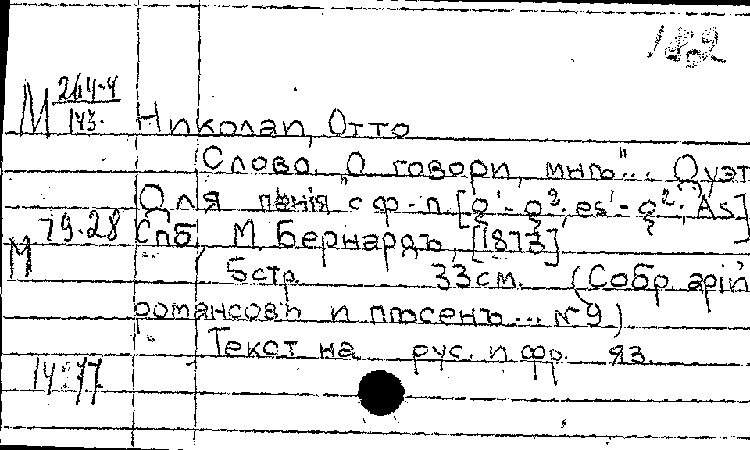 182
М 264-4/143.
Николаи, Отто
Слово. "О говори мнѣ"... Дуэт
Для пѣнія с ф.-п. [g¹-g²; es¹-g²; As]
М 79.28 Спб, М. Бернардъ, [1873]
5 стр. 33 см. (Собр арій
романсовъ и пѣсенъ... № 9)
Текст на рус. и фр. яз.
14:77